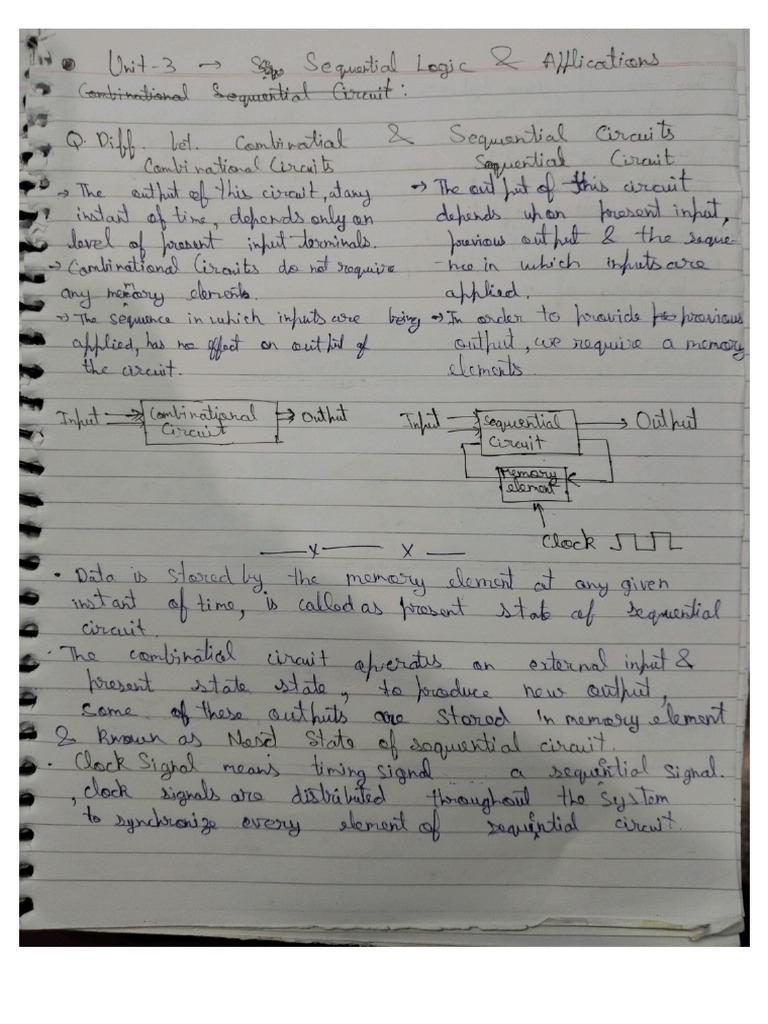 Unit-3 → Sequential Logic & Applications
Combinational Sequential Circuit:
Q. Diff. bet. Combinatial & Sequential Circuits
Combinational Circuits
→ The output of this circuit, at any
instant of time, depends only on
level of present input terminals.
→ Combinational Circuits do not require
any memory elements.
→ The sequence in which inputs are being
applied, has no effect on output of
the circuit.
Sequential Circuit
→ The output of this circuit
depends upon present input,
previous output & the seque-
-nce in which inputs are
applied.
→ In order to provide previous
output, we require a memory
elements.
Input → Combinational → Output
Circuit
Input → Sequential → Output
Circuit
Memory
element
Clock
—x— x —
• Data is stored by the memory element at any given
instant of time, is called as present state of sequential
circuit.
• The combinatial circuit operates on external input &
present state state, to produce new output,
some of these outputs are stored in memory element
& known as Next State of sequential circuit.
• Clock Signal means timing signal a sequential signal.
, clock signals are distributed throughout the System
to synchronize every element of sequential circuit.